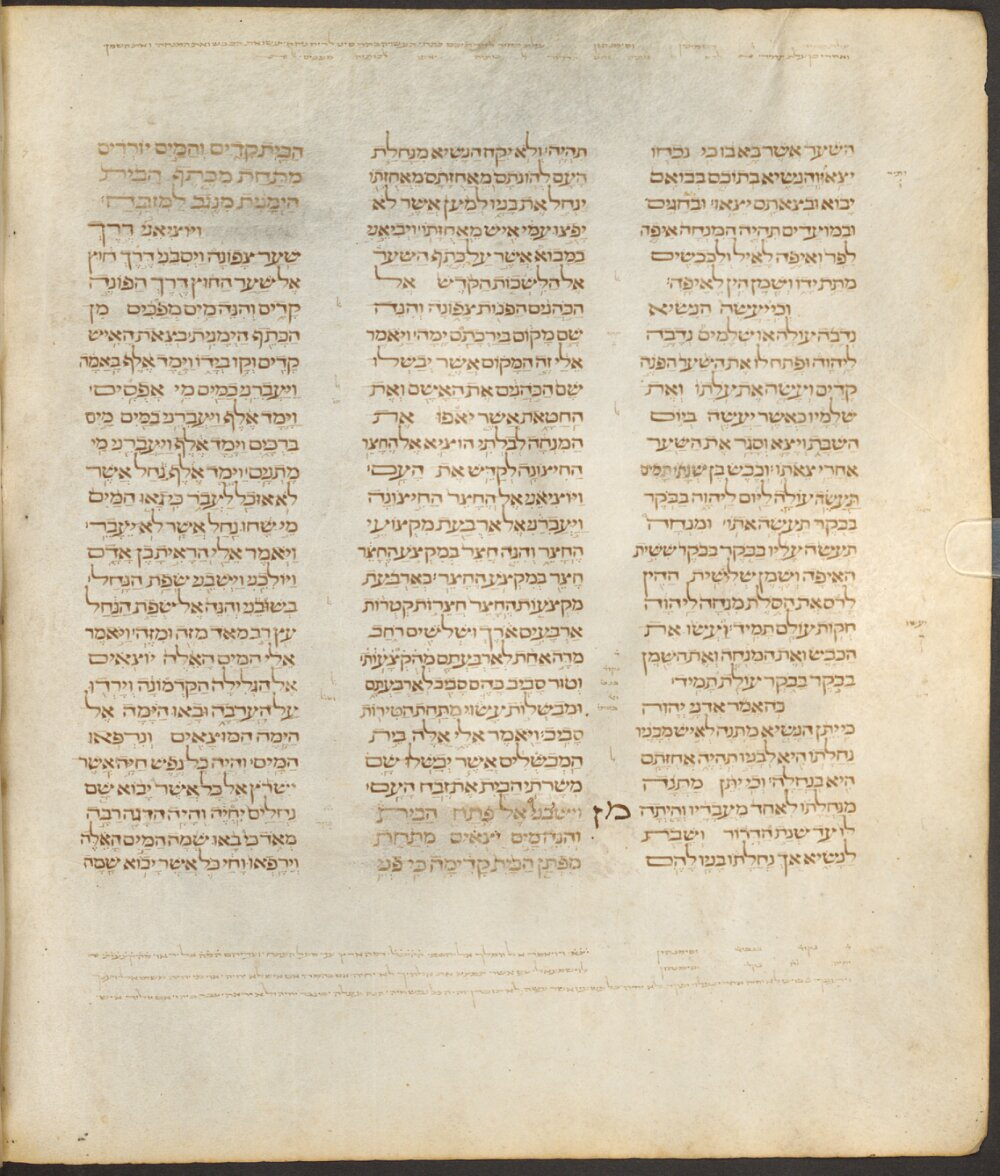 השער אשר בא בו כי נכחו
יצאו והנשיא בתוכם בבואם
יבוא ובצאתם יצאו ובחגים
ובמועדים תהיה המנחה איפה
לפר ואיפה לאיל ולכבשים
מתת ידו ושמן הין לאיפה׃
וכי יעשה הנשיא
נדבה עולה או שלמים נדבה
ליהוה ופתח לו את השער הפנה
קדים ועשה את עלתו ואת
שלמיו כאשר יעשה ביום
השבת ויצא וסגר את השער
אחרי צאתו׃ וכבש בן שנתו תמים
תעשה עולה ליום ליהוה בבקר
בבקר תעשה אתו׃ ומנחה
תעשה עליו בבקר בבקר ששית
האיפה ושמן שלישית ההין
לרס את הסלת מנחה ליהוה
חקות עולם תמיד׃ ועשו את
הכבש ואת המנחה ואת השמן
בבקר בבקר עולת תמיד׃
כה אמר אדני יהוה
כי יתן הנשיא מתנה לאיש מבניו
נחלתו היא לבניו תהיה אחזתם
היא בנחלה׃ וכי יתן מתנה
מנחלתו לאחד מעבדיו והיתה
לו עד שנת הדרור ושבת
לנשיא אך נחלתו בניו להם
תהיה׃ ולא יקח הנשיא מנחלת
העם להונתם מאחזתם מאחזתו
ינחל את בניו למען אשר לא
יפצו עמי איש מאחזתו׃ ויביאני
במבוא אשר על כתף השער
אל הלשכות הקדש אל
הכהנים הפנות צפונה והנה
שם מקום בירכתם ימה׃ ויאמר
אלי זה המקום אשר יבשלו
שם הכהנים את האשם ואת
החטאת אשר יאפו את
המנחה לבלתי הוציא אל החצר
החיצונה לקדש את העם׃
ויוציאני אל החצר החיצונה
ויעברני אל ארבעת מקצועי
החצר והנה חצר במקצע החצר
חצר במקצע החצר׃ בארבעת
מקצעות החצר חצרות קטרות
ארבעים ארך ושלשים רחב
מדה אחת לארבעתם מהקצעות׃
וטור סביב בהם סביב לארבעתם
ומבשלות עשוי מתחת הטירות
סביב׃ ויאמר אלי אלה בית
המבשלים אשר יבשלו שם
משרתי הבית את זבח העם׃
מז
וישבני אל פתח הבית
והנה מים יצאים מתחת
מפתן הבית קדימה כי פני
הבית קדים והמים יורדים
מתחת מכתף הבית
הימנית מנגב למזבח׃
ויוציאני דרך
שער צפונה ויסבני דרך חוץ
אל שער החוץ דרך הפונה
קדים והנה מים מפכים מן
הכתף הימנית׃ בצאת האיש
קדים וקו בידו וימד אלף באמה
ויעברני במים מי אפסים׃
וימד אלף ויעברני במים מים
ברכים וימד אלף ויעברני מי
מתנים׃ וימד אלף נחל אשר
לא אוכל לעבר כי גאו המים
מי שחו נחל אשר לא יעבר׃
ויאמר אלי הראית בן אדם
ויולכני וישבני שפת הנחל׃
בשובני והנה אל שפת הנחל
עץ רב מאד מזה ומזה׃ ויאמר
אלי המים האלה יוצאים
אל הגלילה הקדמונה וירדו
על הערבה ובאו הימה אל
הימה המוצאים ונרפאו
המים׃ והיה כל נפש חיה אשר
ישרץ אל כל אשר יבוא שם
נחלים יחיה והיה הדגה רבה
מאד כי באו שמה המים האלה
וירפאו וחי כל אשר יבוא שמה